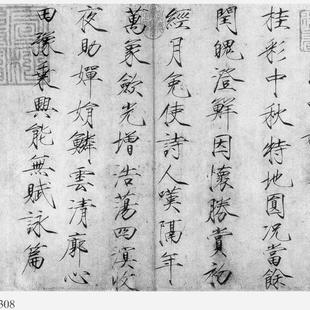 桂彩中秋特地圓況當餘
閏魄澄鮮因懷勝賞初
經月免使詩人嘆隔年
萬象歛光增浩蕩四溟收
夜助嬋娟鱗雲清廓心
田豫乘興能無賦詠篇
308